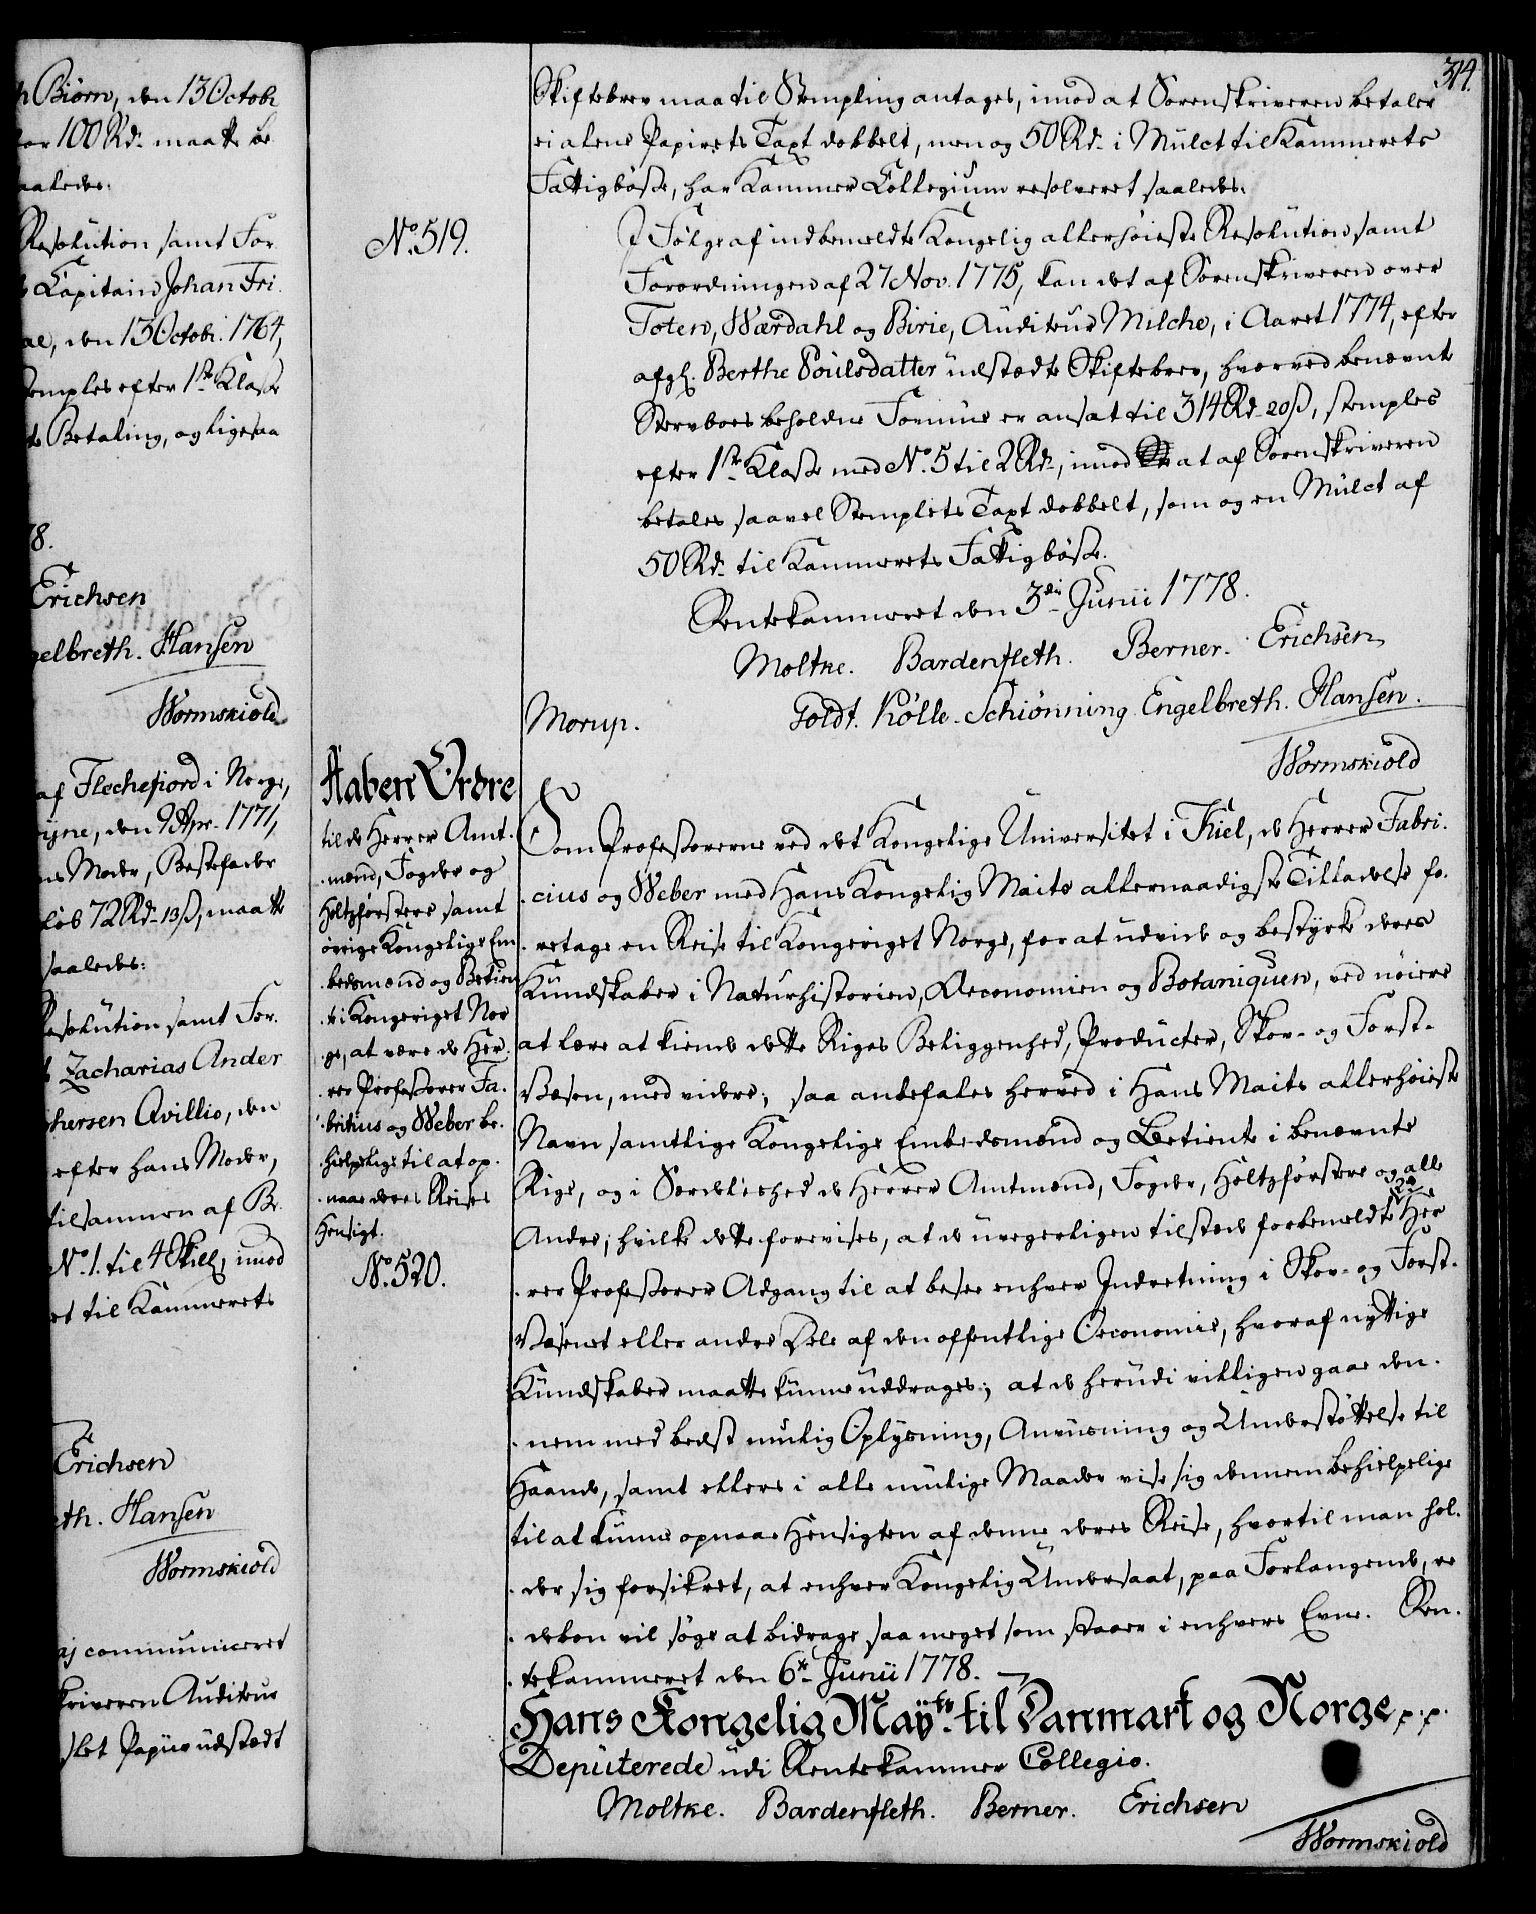 h Biørn, den 13 Octobr
or 100 Rd. maatte be
aaledes:
Resolution samt For
Capitain Johan Fri
ae, den 13 Octobr. 1764,
emples efter 1ste Klasse
te Betaling, og ligesaa
8.
Erichsen
gelbreth. Hansen
Wormskiold
af Flechefiord i Norge,
øyne, den 9 Apr. 1771,
ns Moder, Bestefader
løb 72 Rd. 13 ß, maatte
saaledes:
Resolution samt For.
Zacharias Ander
hersen Avillio, den
efter hans Moder,
tilsammen af B
No. 1. til 4 Skill, imod
et til Kammerets
Erichsen
eth. Hansen
Wormskiold
aj communiceret
kriveren Auditeur
slet Papiir udstædt
314.
Skiftebrev maa til Stempling antages, imod at Sorenskriveren betaler
ei alene Papirets Taxt dobbelt, men og 50 Rd. i Mulct til Kammerets
Fattigbøsse, har Kammer Collegium resolveret saaledes:
No. 519.
I Følge af indbemeldte Kongelig allerhøieste Resolution samt
Forordningen af 27 Nov. 1775, kan det af Sorenskriveren over
Toten, Wardahl og Birie, Auditeur Milche, i Aaret 1774, efter
afgl. Berthe Poulsdatter udstædte Skiftebrev, hvorved benævnte
Stervboes beholdne Formue er ansat til 314 Rd. 20 ß, stemples
efter 1ste Klasse med No. 5 til 2 Rd., imod at af Sorenskriveren
betales saavel Stemplets Taxt dobbelt, som og en Mulct af
50 Rd. til Kammerets Fattigbøsse.
Rentekammeret den 3die Junii 1778.
Moltke. Bardenfleth. Berner. Erichsen
Morup. Goldt. Kølle. Schiønning Engelbreth. Hansen.
Wormskiold
Aaben Ordre
til de Herrer Amt-
mænd, Fogder og
Holtzførstere samt
øvrige Kongelige Em
bedsmænd og Betien
te i Kongeriget Nor
ge, at være de Her-
rer Professorer Fa-
britius og Weber be-
hielpelige til at op-
naae deres Reises
Hensigt.
No. 520.
Som Professorerne ved det Kongelige Universitet i Kiel, de Herrer Fabri-
cius og Weber med Hans Kongelig Maits allernaadigste Tilladelse fo-
retage en Reise til Kongeriget Norge, for at udvide og bestyrke deres
Kundskaber i Naturhistorien, Oeconomien og Botaniquen, ved nøiere
at lære at kiende dette Riges Beliggenhed, Producter, Skov- og Forst-
Væsen, med videre; saa anbefales herved i Hans Maits allerhøieste
Navn samtlige Kongelige Embedsmænd og Betiente i benævnte
Rige, og i Særdeleshed de Herrer Amtmænd, Fogder, Holtzførstere og alle
Andre, hvilke dette forevises, at de uvegerligen tilstæde forbemeldte 2de Her
rer Professorer Adgang til at besee enhver Indretning i Skov- og Forst-
Væsenet eller andre Dele af den offentlige Oeconomie, hvoraf nyttige
Kundskaber maatte kunne uddrages; at de herudi villigen gaae den-
nem med beedst muelig Oplysning, Anviisning og Understøttelse til
Haande, samt ellers i alle muelige Maader viise sig dennem behielpelige
til at kunne opnaae Hensigten af denne deres Reise, hvortil man hol-
der sig forsikret, at enhver Kongelig Undersaat, paa Forlangende, re
debon vil søge at bidrage saa meget som staaer i enhvers Evne. Ren-
tekammeret den 6te Junii 1778.
Hans Kongelig Mayts. til Danmark og Norge p.p.
Deputerede udi Rentekammer Collegio.
Moltke. Bardenfleth. Berner. Erichsen
Wormskiold